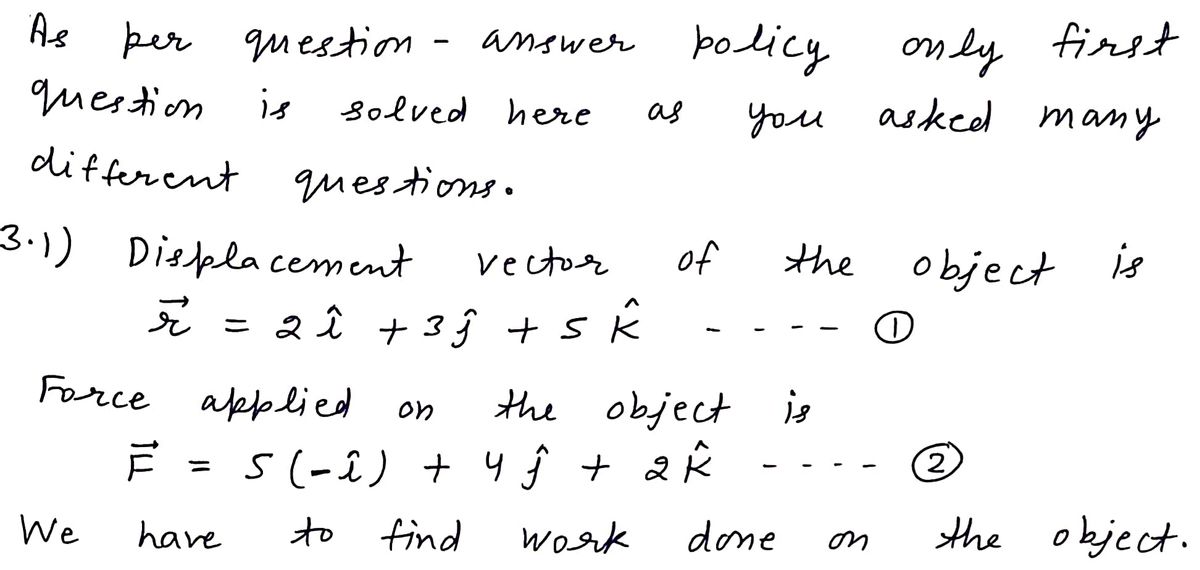 As per question - answer policy only first
question is solved here as you asked many
different questions.
3.1) Displacement vector of the object is
r⃗ = 2 î + 3 ĵ + 5 k̂ - - - - - ①
Force applied on the object is
F⃗ = 5 (-î) + 4 ĵ + 2 k̂ - - - - - ②
We have to find work done on the object.